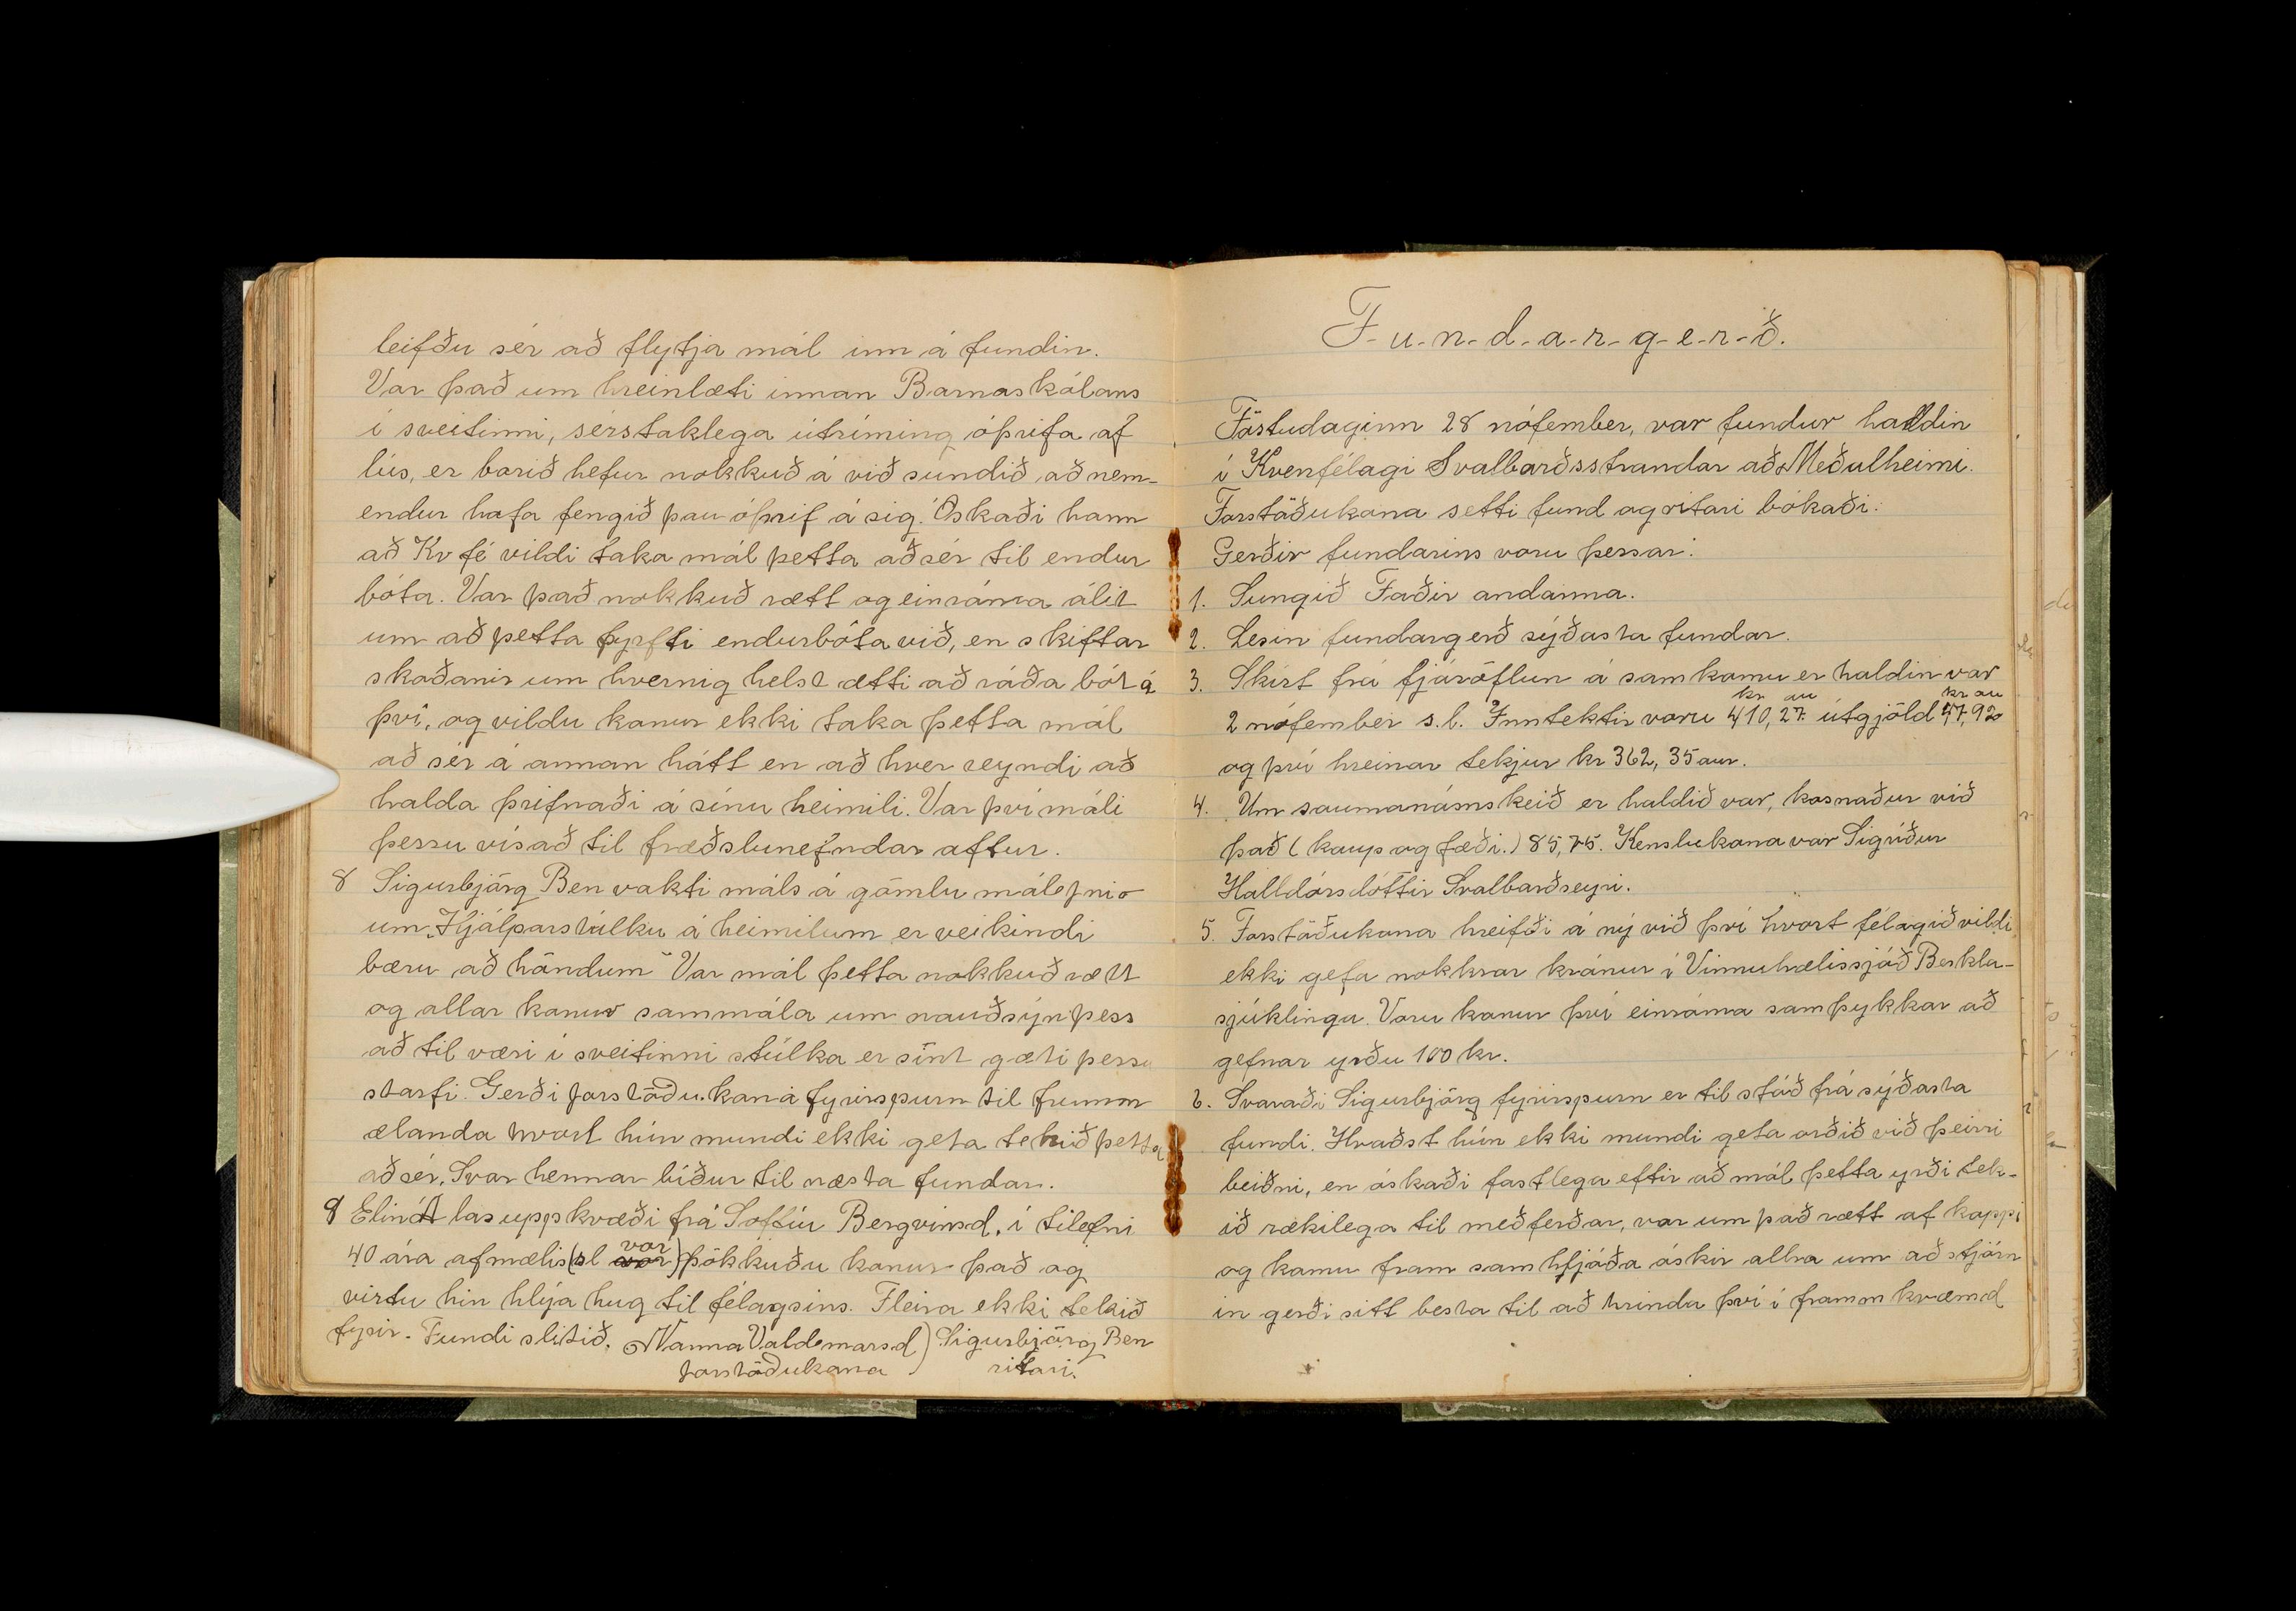 leifðu sér að flytja mál inn á fundin.
Var það um hreinlæti innan Barnaskólans
í sveitinni, sérstaklega útríming óþrifa af
lús, er borið hefur nokkuð á við sundið að nem-
endur hafa fengið þau óþrif á sig. Óskaði hann
að Kv fé vildi taka mál þetta að sér til endur
bóta. Var það nokkuð rætt og einróma álit
um að þetta þyrfti endurbóta við, en skiftar
skoðanir um hvernig helst ætti að ráða bót á
því, og vildu konur ekki taka þetta mál
að sér á annan hátt en að hver reyndi að
halda þrifnaði á sínu heimili. Var því máli
þessu vísað til fræðslunefndar aftur.
8 Sigurbjörg Ben vakti máls á gömlu málefni
um „Hjálparstúlku á heimilum er veikindi
bæru að höndum" Var mál þetta nokkuð rætt
og allar konur sammála um nauðsýn þess
að til væri í sveitinni stúlka er sint gæti þessu
starfi. Gerði forstöðukona fyrirspurn til frumm
ælanda hvort hún mundi ekki geta tekið þetta
að sér. Svar hennar bíður til næsta fundar.
9 Elín A las upp kvæði frá Soffíu Bergvinsd. í tilefni
40 ára afmælis (sl vor) þökkuðu konur það og
virtu hin hlýja hug til félagsins. Fleira ekki tekið
fyrir. Fundi slitið. Nanna Valdemarsd) Sigurbjörg Ben
forstöðukona ritari.
F-u-n-d-a-r-g-e-r-ð.
Föstudaginn 28 nófember, var fundur haldin
í Kvenfélagi Svalbarðsstrandar að Meðalheimi.
Forstöðukona setti fund og ritari bókaði:
Gerðir fundarins voru þessar:
1. Sungið Faðir andanna.
2. Lesin fundargerð sýðasta fundar.
3. Skírt frá fjáröflun á samkomu er haldin var
2 nófember s.l. Inntektir voru kr 410,27 au útgjöld kr 47,92 au
og því hreinar tekjur kr 362,35 aur.
4. Um saumanámskeið er haldið var, kosnaður við
það (kaup og fæði.) 85,75. Kenslukona var Sigríður
Halldórsdóttir Svalbarðseyri.
5. Forstöðukona hreifði á ný við því hvort félagið vildi
ekki gefa nokkrar krónur í Vinnuhælissjóð Berkla-
sjúklinga. Voru konur því einróma samþykkar að
gefnar yrðu 100 kr.
6. Svaraði Sigurbjörg fyrirspurn er til stóð frá sýðasta
fundi. Kvaðst hún ekki mundi geta orðið við þeirri
beiðni, en óskaði fastlega eftir að mál þetta yrði tek-
ið rækilega til meðferðar, var um það rætt af kappi
og komu fram samhljóða óskir allra um að stjórn
in gerði sitt besta til að hrinda því í framm kvæmd